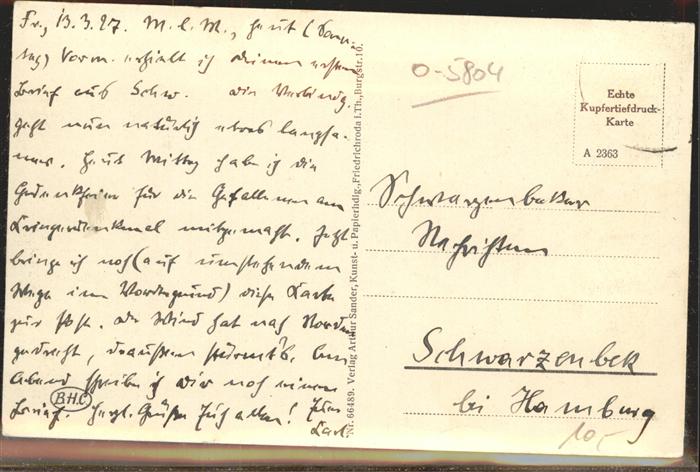 Fr., 13.3.27. M. l. M., heut (Sonn-
tag) Vorm. erhielt ich deinen ersten
Brief aus Schw. Die Verbindg.
geht nun natürlich etwas langsa-
mer. Heut Mittag habe ich die
Gedenkfeier für die Gefallenen am
Kriegerdenkmal mitgemacht. Jetzt
bringe ich noch (auf umstehendem
Wege im Vordergrund) diese Karte
zur Post. Der Wind hat nach Norden
gedreht, draußen stürmt's. Am
Abend schreibe ich Dir noch einen
Brief. Herzl. Grüße Euch allen! Euer
Karl.
BHC
Nr. 66489. Verlag Arthur Sander, Kunst- u. Papierhdlg., Friedrichroda i. Th., Burgstr. 10.
0-5804
Echte
Kupfertiefdruck-
Karte
A 2363
Schwarzenbeker
Nachrichten
Schwarzenbek
bei Hamburg
10,-